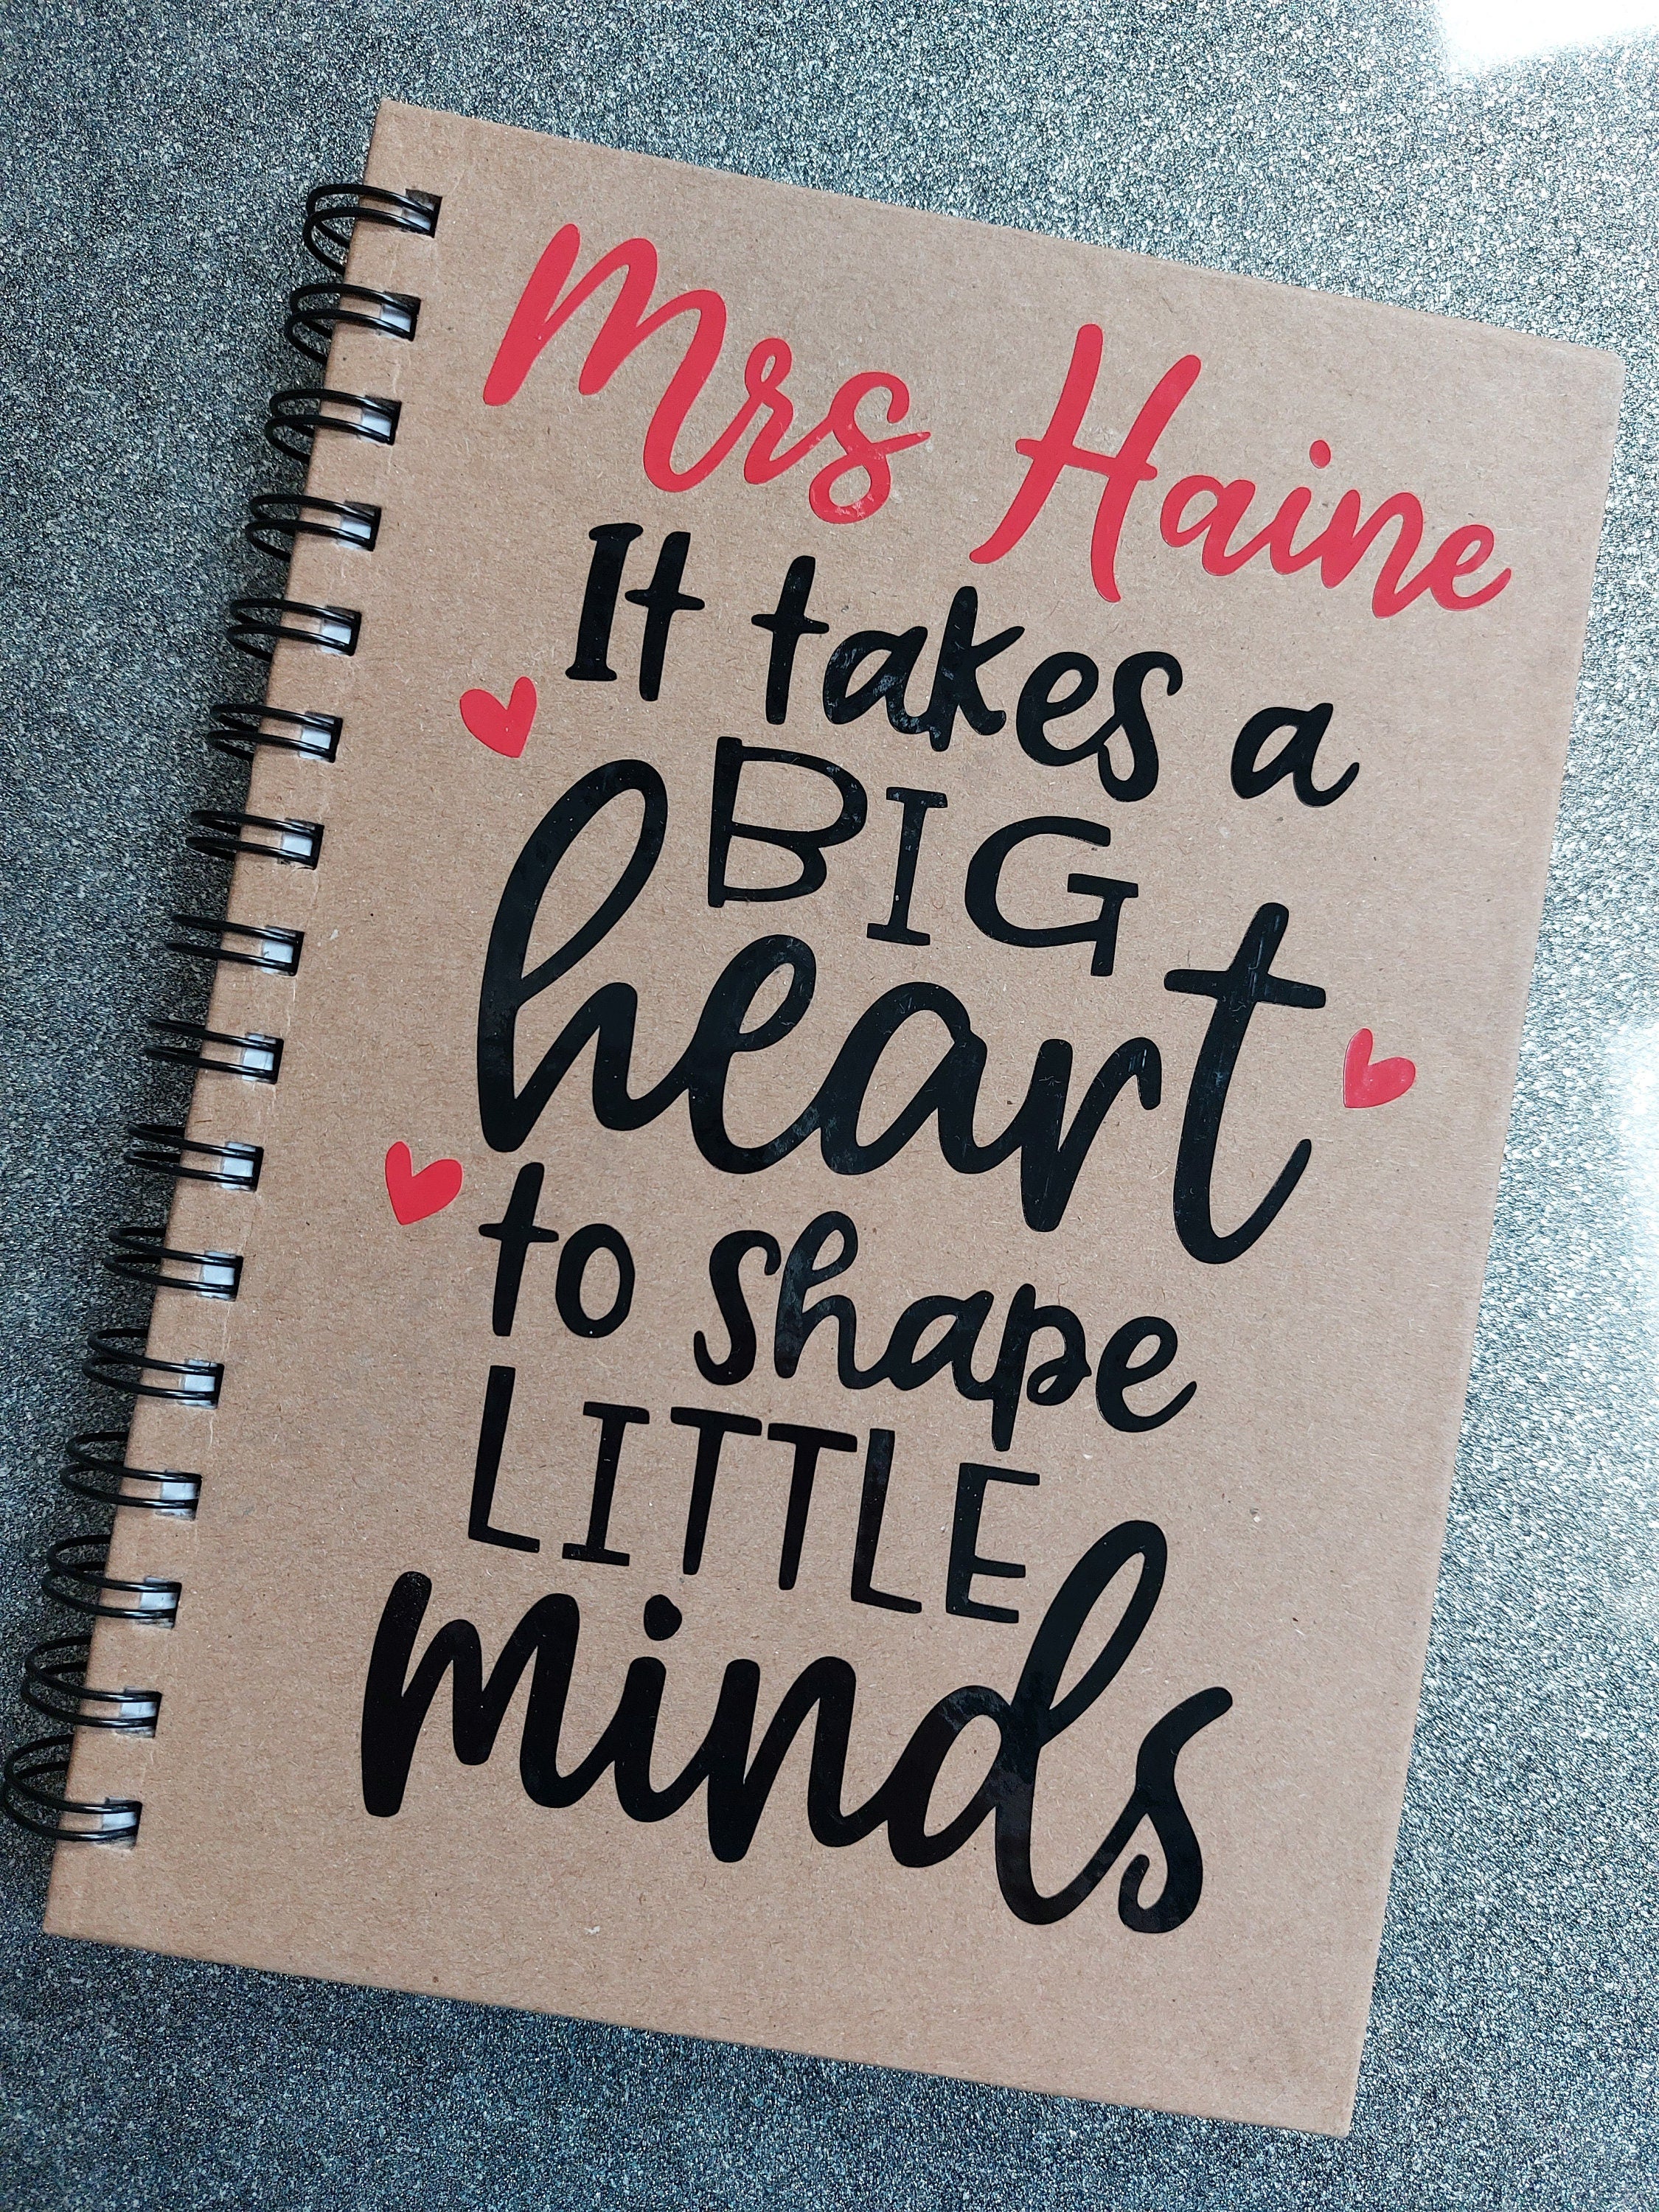 Mrs Haine
It takes a
BIG
heart
to shape
LITTLE
minds